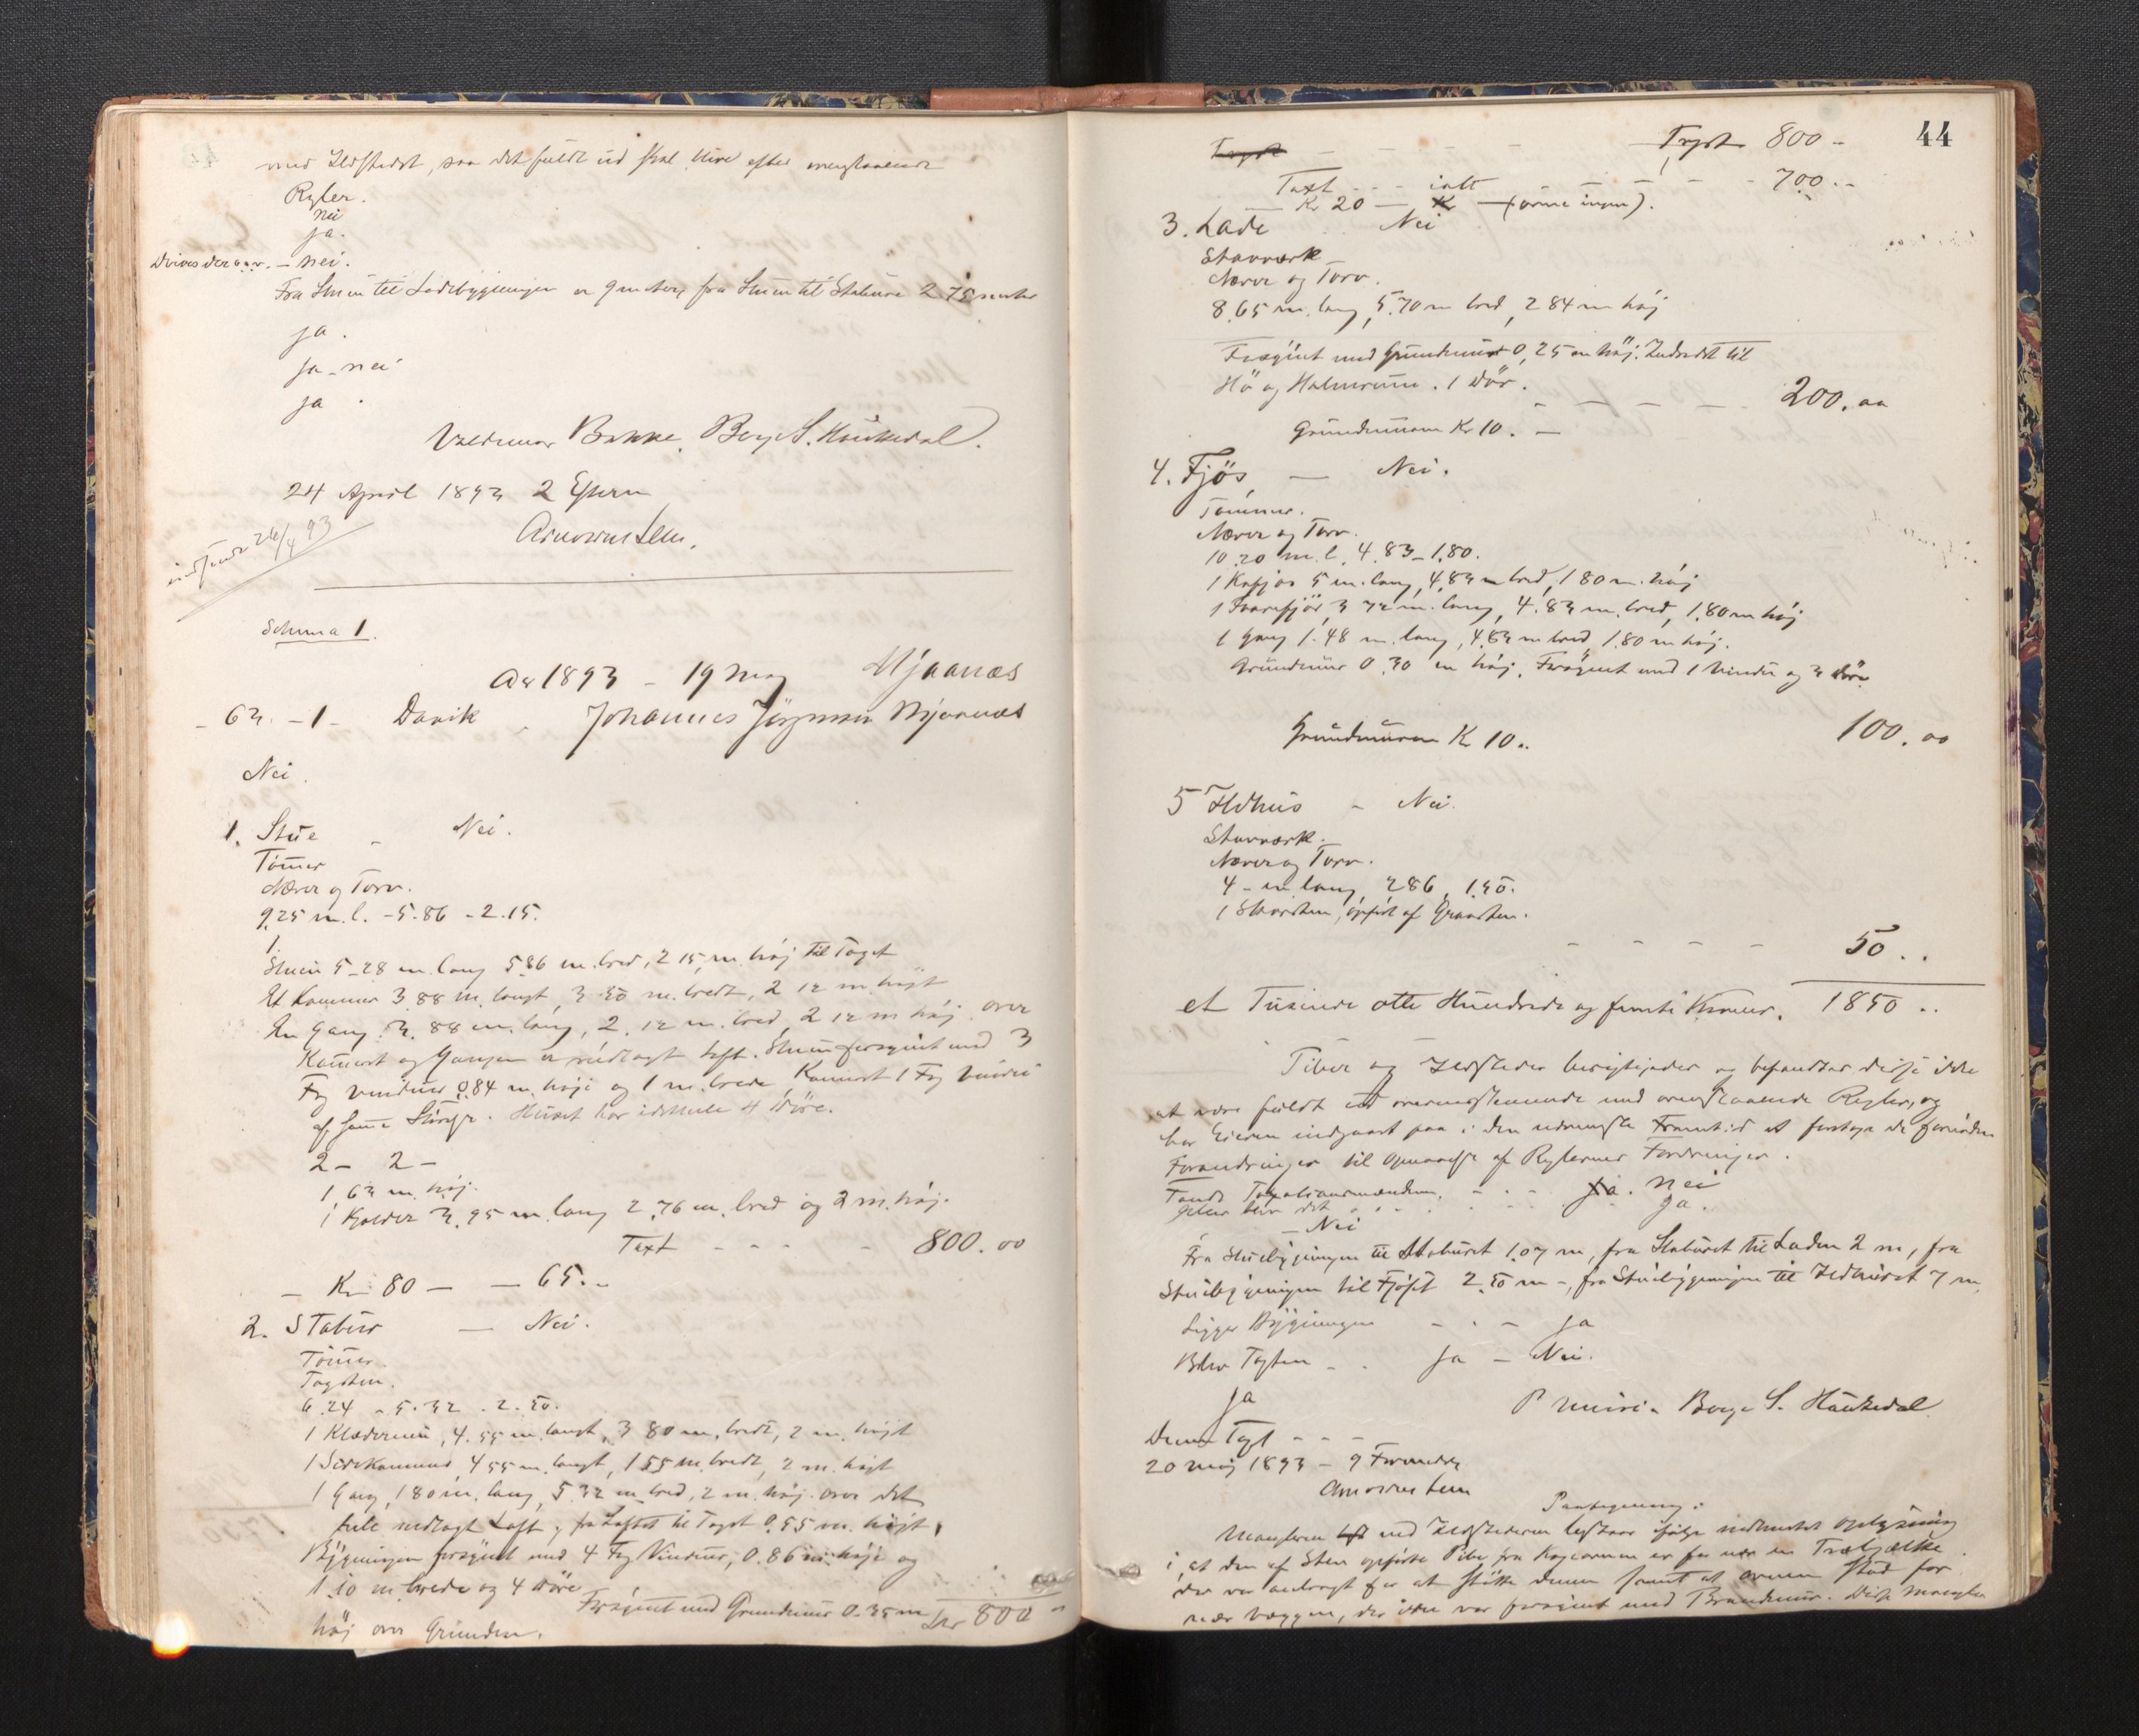 med Ildstedet, saa det fuldt ud skal blive efter
Regler.
nei
ja.
Drives der o.s.v. – nei.
Fra Stuen til Ladebygningen er 9 meter, fra Stuen til Stabure 2 75 meter
ja.
ja – nei
ja.
Valdemar Bakke. Borge S. Haukedal.
24 April 1893 2 Efterm
24/4 93
Schema 1.
Aar 1893 – 19 Maj Mjaanæs
– 63. – 1 – Davik Johannes Jörgensen Mjaanæs
Nei.
1. Stue – Nei.
Tömmer
Næver og Torv.
9.25 m. l. – 5.86 – 2.15.
1.
Stuen 5.28 m. lang 5.86 m. bred, 2 15 m. höj til Taget
Et Kammer 3.88 m. langt, 3 50 m. bredt, 2 12 m. höjt
En Gang 3.88 m. lang, 2.12 m. bred, 2 12 m höj. over
Kammeret og Gangen er nedlagt Loft. Stuen forsynet med 3
Fag Vinduer 0.84 m. höje og 1 m. brede Kammeret 1 Fag Vindu
af samme Störelse. Huset har idethele 4 Döre.
2 – 2 –
1,63 m. höj.
1 Kjelder 3.95 m. lang 2.76 m. bred og 2 m. höj.
Taxt – – – – 800.00
– Kr 80 – – 65..
2. Stabur – Nei.
Tömmer.
Tagsten.
6.24 – 5.32 . 2.50.
1 Klæderum, 4.55 m. langt, 3 80 m. bredt, 2 m. höjt
1 Sidekammer 4 55 m. langt, 1 55 m. bredt, 2 m. höjt
1 Gang, 1 80 m. lang, 5.32 m. bred, 2 m. höj. over det
hele nedlagt Loft, fra Loftet til Taget 0.55 m. höjt,
Bygningen forsynet med 4 Fag Vinduer, 0.86 m. höje og
1.10 m. brede og 4 Döre
Forsynet med Grundmur 0.35 m
höj over Grunden. Kr 800
44
Taxt – – – – Taxt 800 –
Taxt – – – ialt – – – – 700..
– Kr 20 – Kr
3. Lade Nei
Stavværk
Næver og Torv.
8.65 m. lang, 5.70 m bred, 2 84 m höj
Forsynet med Grundmur 0,25 m höj. Indredet til
Hö og Halmrum. 1 Dör.
– – – – 200.00
Grundmuren Kr 10. –
4. Fjös, – Nei.
Tömmer.
Næver og Torv.
10.20 m. l. 4.83 – 1.80.
1 Kofjös 5 m. lang, 4.83 m bred, 1 80 m. höj
1 Faarefjös, 3 72 m. lang, 4.83 m. bred, 1.80 m höj
1 Gang 1.48 m. lang, 4.83 m bred, 1.80 m höj.
Grundmur 0.30 m höj. Forsynet med 1 Vindu og 3 Döre
Grundmuren Kr 10.. 100.00
5 Ildhus – Nei.
Stavværk.
Næver og Torv.
4 – m lang, 286, 1.50.
1 Skorsten, opfört af Graasten.
– – – – 50..
et Tusinde otte Hundrede og femti Kroner. 1850..
Piber og Ildsteder besigtigedes og befandtes disse ikke
at være fuldt ud overensstemmende med ovenstaaende Regler, og
har Eieren indgaaet paa i den nærmeste Fremtid at foretage de fornödne
Forandringer til Opnaaelse af Reglernes Fordringer.
Fandt Taxationsmændene – – – ja. nei
ja.
– Nei
Fra Stuebygningen til Staburet 1.07 m, fra Staburet til Laden 2 m, fra
Stuebygningen til Fjöset 2.50 m –, fra Stuebygningen til Ildhuset 7 m,
Ligger Bygningen – – – ja
Blev Taxten – – ja – Nei.
ja
Borge S. Haukedal
Denne Taxt – – –
20 Maj 1893 – 9 Formiddag
Paategning:
Manglerne ved Ildstederne bestaar ifölge indhentet Oplysning
i, at den af Sten opförte Pibe fra Kogeovnen er for nær en Træbjælke
der var anbragt for at stötte denne samt at ovnen stod for
nær Væggen, der ikke var forsynet med Brandmur. Disse Mangler